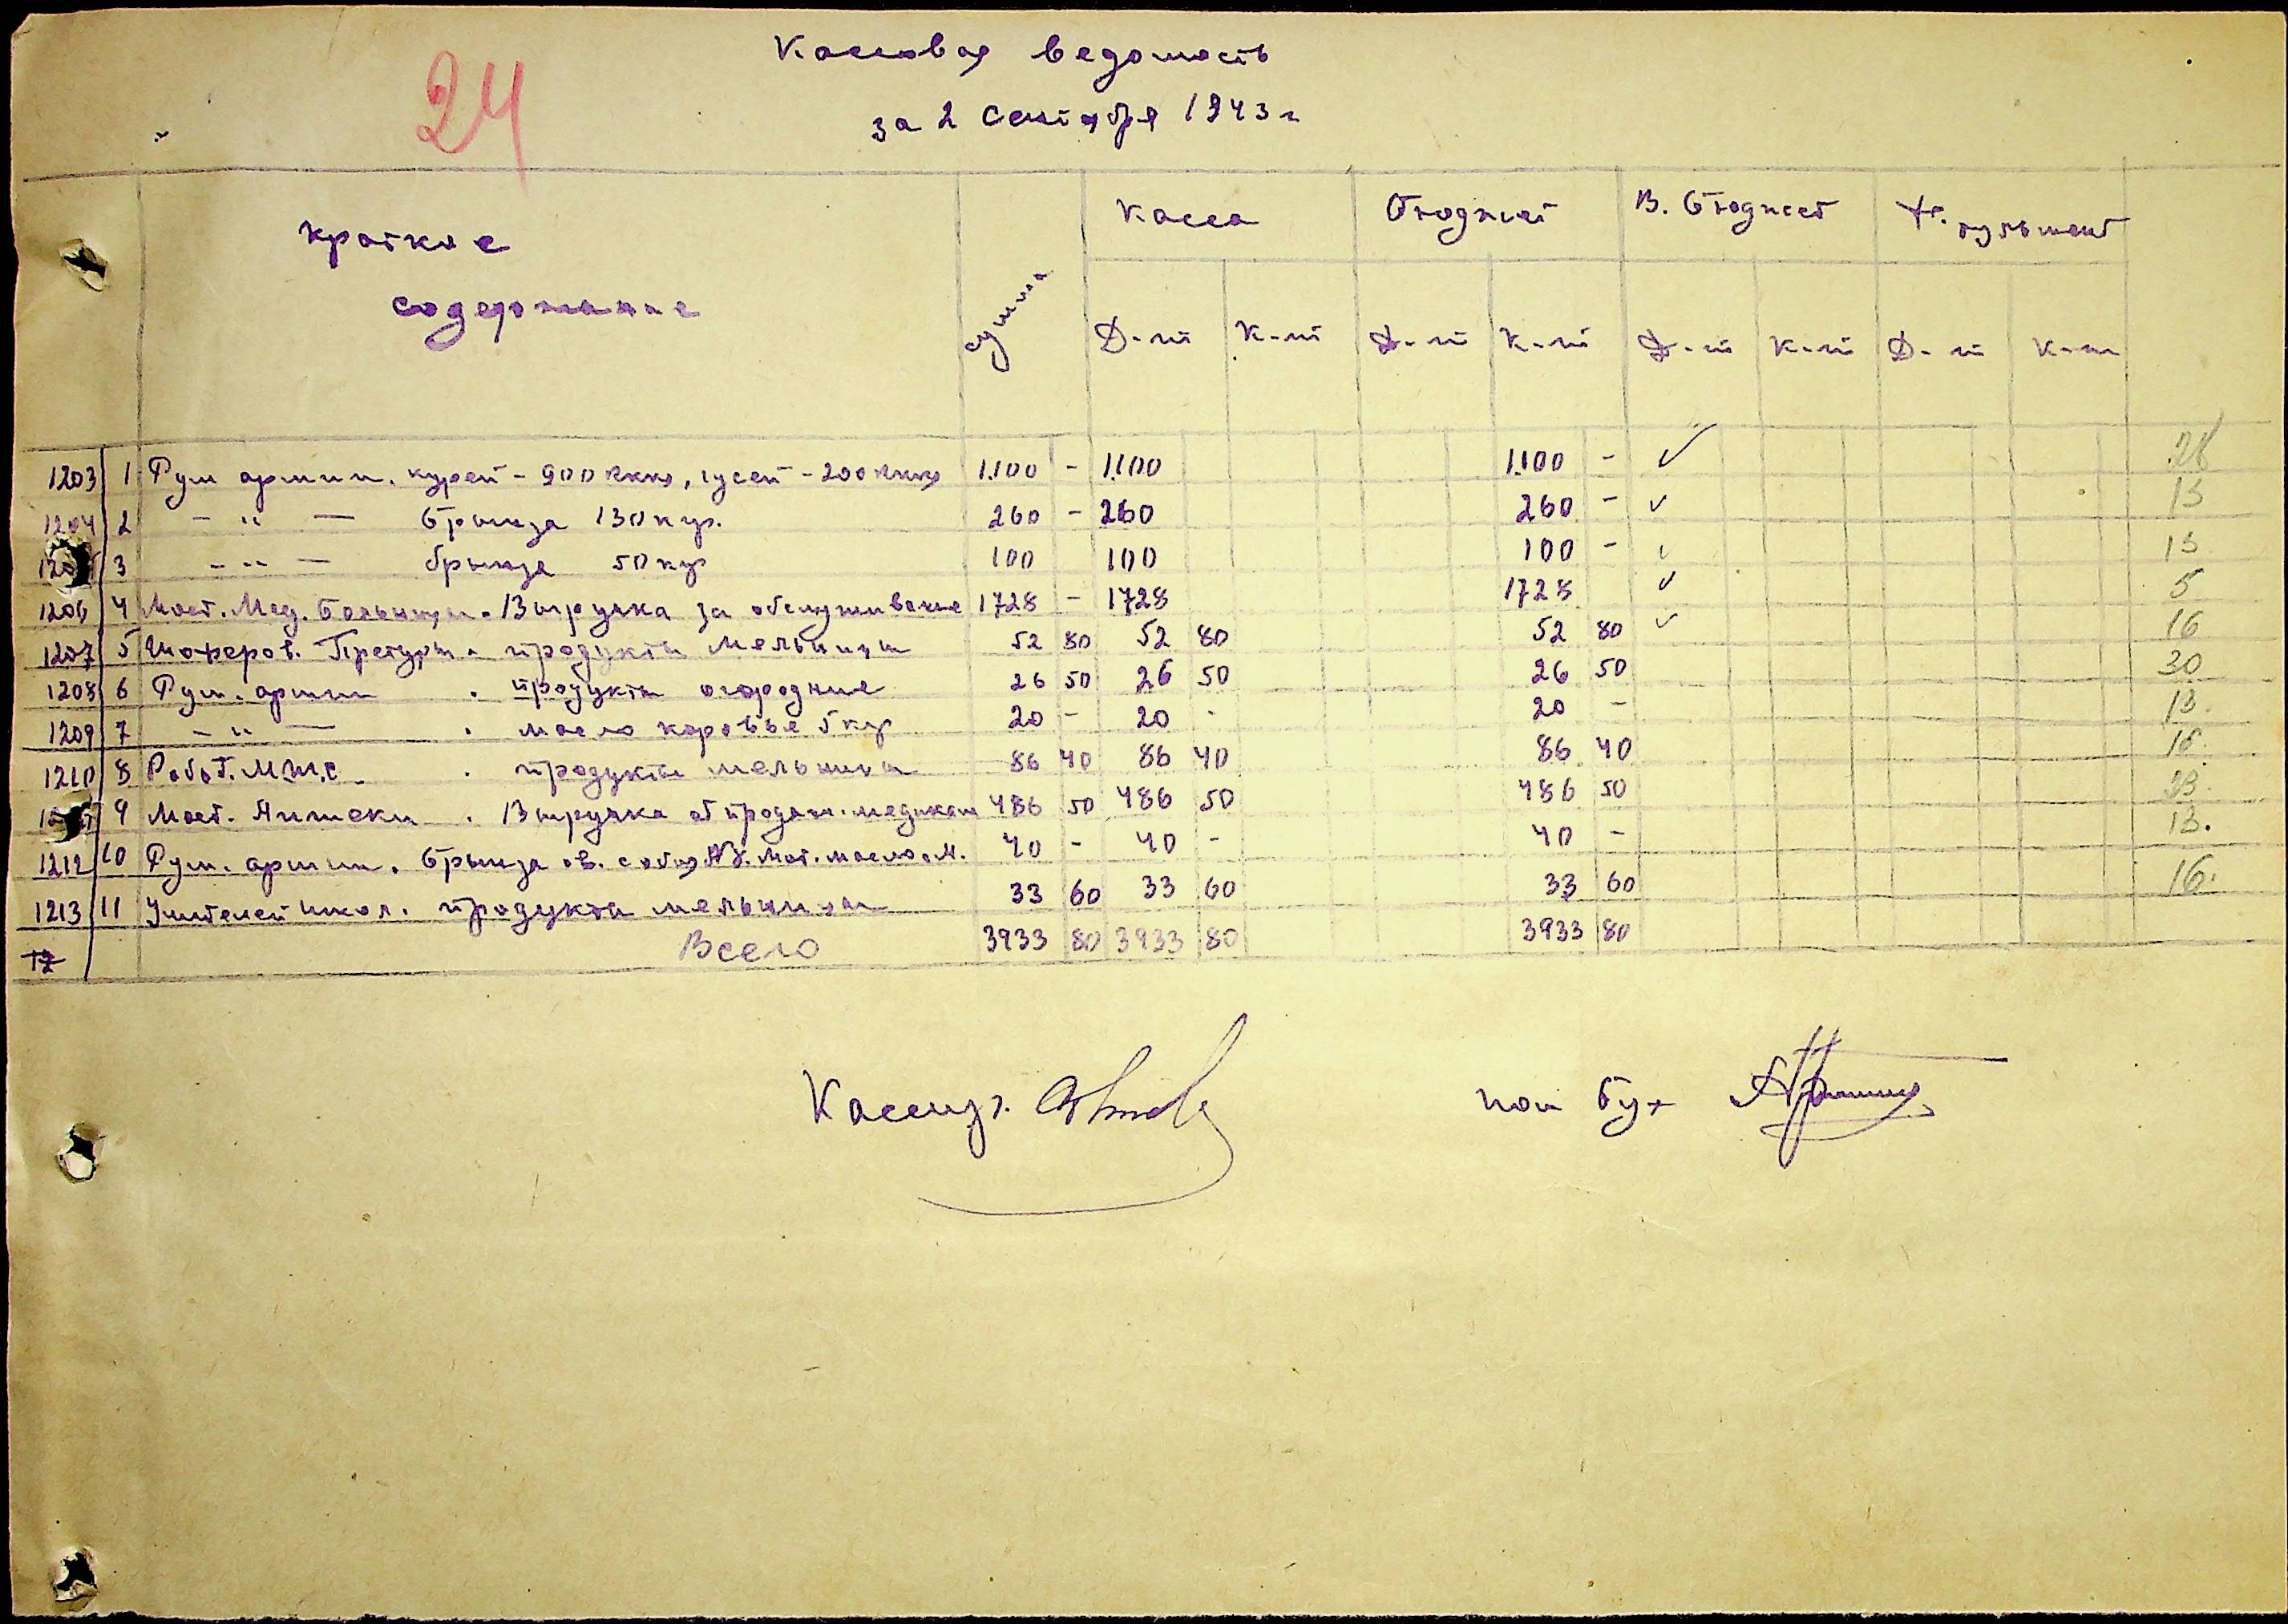 24
Кассовая ведомость
за 2 Сентября 1943 г
краткое содержание сумма Касса Бюджет В. Бюджет
Д-т К-т Д-т К-т Д-т К-т Д-т К-т
1203 1 Рум армии. курей - 900 , гусей - 200 1.100 - 1.100 1.100 - ✓ 28
1204 2 - " - брынза 130 кгр. 260 - 260 260 - ✓ 13
3 - " - брынза 50 кгр 100 100 100 - ✓ 13
1206 4 Мост. Мед. Больницы. Выручка за обслуживание 1728 - 1728 1728 ✓ 5
1207 5 Шоферов. Претуры. продукты мельницы 52 80 52 80 52 80 ✓ 16
1208 6 Рум. армии . продукты огородние 26 50 26 50 26 50 30
1209 7 - " - . масло коровье 5 кгр 20 - 20 - 20 - 13.
1210 8 Работ. М.Т.С. . продукты мельницы 86 40 86 40 86 40 16.
9 Мост. Аптеки . Выручка от продаж. медикам 486 50 486 50 486 50 23.
1212 10 Рум. армии. брынза ов. 40 - 40 - 40 - 13.
1213 11 Учителей школ. продукты мельницы 33 60 33 60 33 60 16.
12 Всего 3933 80 3933 80 3933 80
Кассир.
пом бух